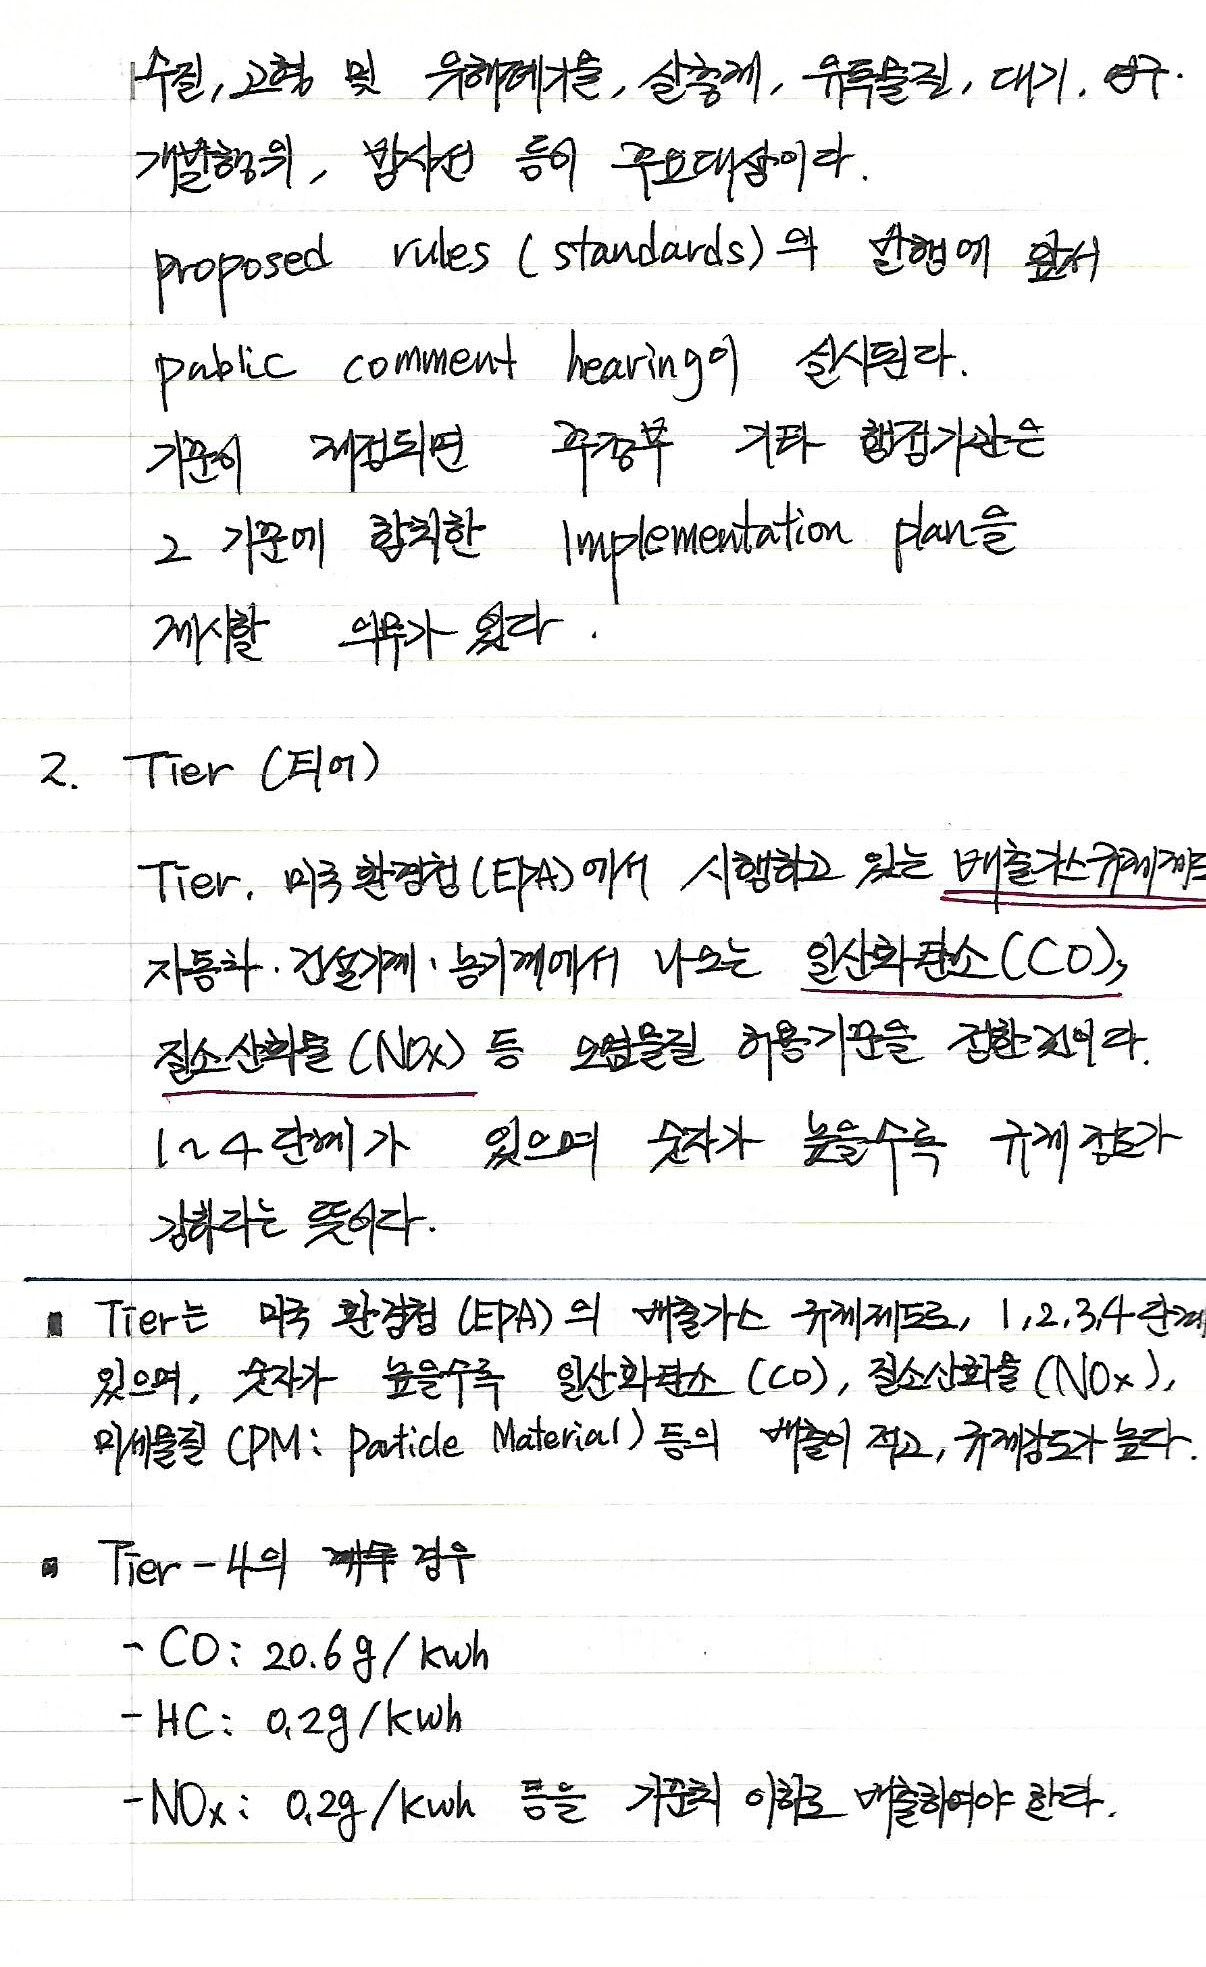 수질, 고형 및 유해폐기물, 살충제, 유독물질, 대기, 연구·
개발행위, 방사선 등이 주요대상이다.
proposed rules (standards)의 발행에 앞서
public comment hearing이 실시된다.
기준이 제정되면 주정부 기타 행정기관은
그 기준에 합치한 Implementation plan을
제시할 의무가 있다.
2. Tier (티어)
Tier. 미국환경청(EPA)에서 시행하고 있는 배출가스규제제도
자동차·건설기계·농기계에서 나오는 일산화탄소(CO),
질소산화물(NOx) 등 오염물질 허용기준을 정한것이다.
1~4단계가 있으며 숫자가 높을수록 규제강도가
강하다는 뜻이다.
▪ Tier는 미국 환경청(EPA)의 배출가스 규제제도로, 1,2,3,4단계
있으며, 숫자가 높을수록 일산화탄소(CO), 질소산화물(NOx),
미세물질 (PM: Particle Material) 등의 배출이 적고, 규제강도가 높다.
▪ Tier-4의 경우
- CO: 20.6g/kwh
- HC: 0.2g/kwh
- NOx: 0.2g/kwh 등을 기준치 이하로 배출하여야 한다.